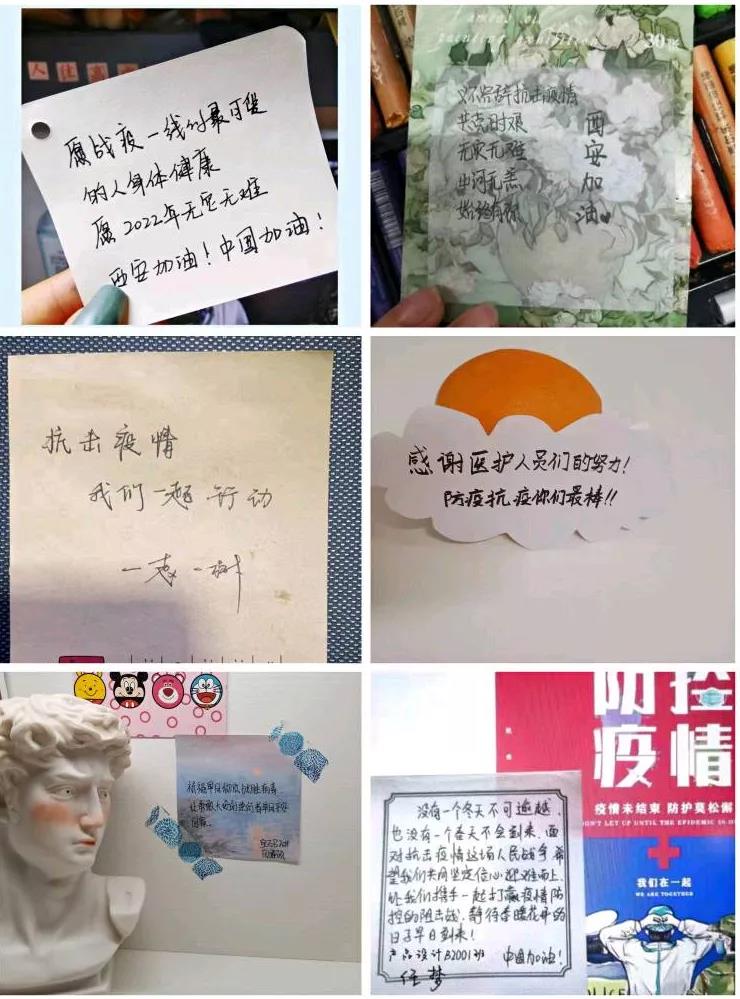 愿战疫一线的最可爱
的人身体健康
愿2022年无灾无难
西安加油！中国加油！
famous oil
painting exhibition
30
义不容辞抗击疫情
共克时艰
无灾无难
山河无恙
始终有你
西
安
加
油
抗击疫情
我们一起行动
感谢医护人员们的努力！
防疫抗疫你们最棒!!
防控
疫情
疫情未结束 防护莫松懈
DON'T LET UP UNTIL THE EPIDEMIC IS
我们在一起
WE ARE TOGETHER
POLICE
没有一个冬天不可逾越，
也没有一个春天不会到来，面
对抗击疫情这场人民战争希
望我们共同坚定信心迎难而上，
让我们携手一起打赢疫情防
控的阻击战，静待春暖花开的
日子早日到来！
产品设计B2001班 中国加油！
任梦